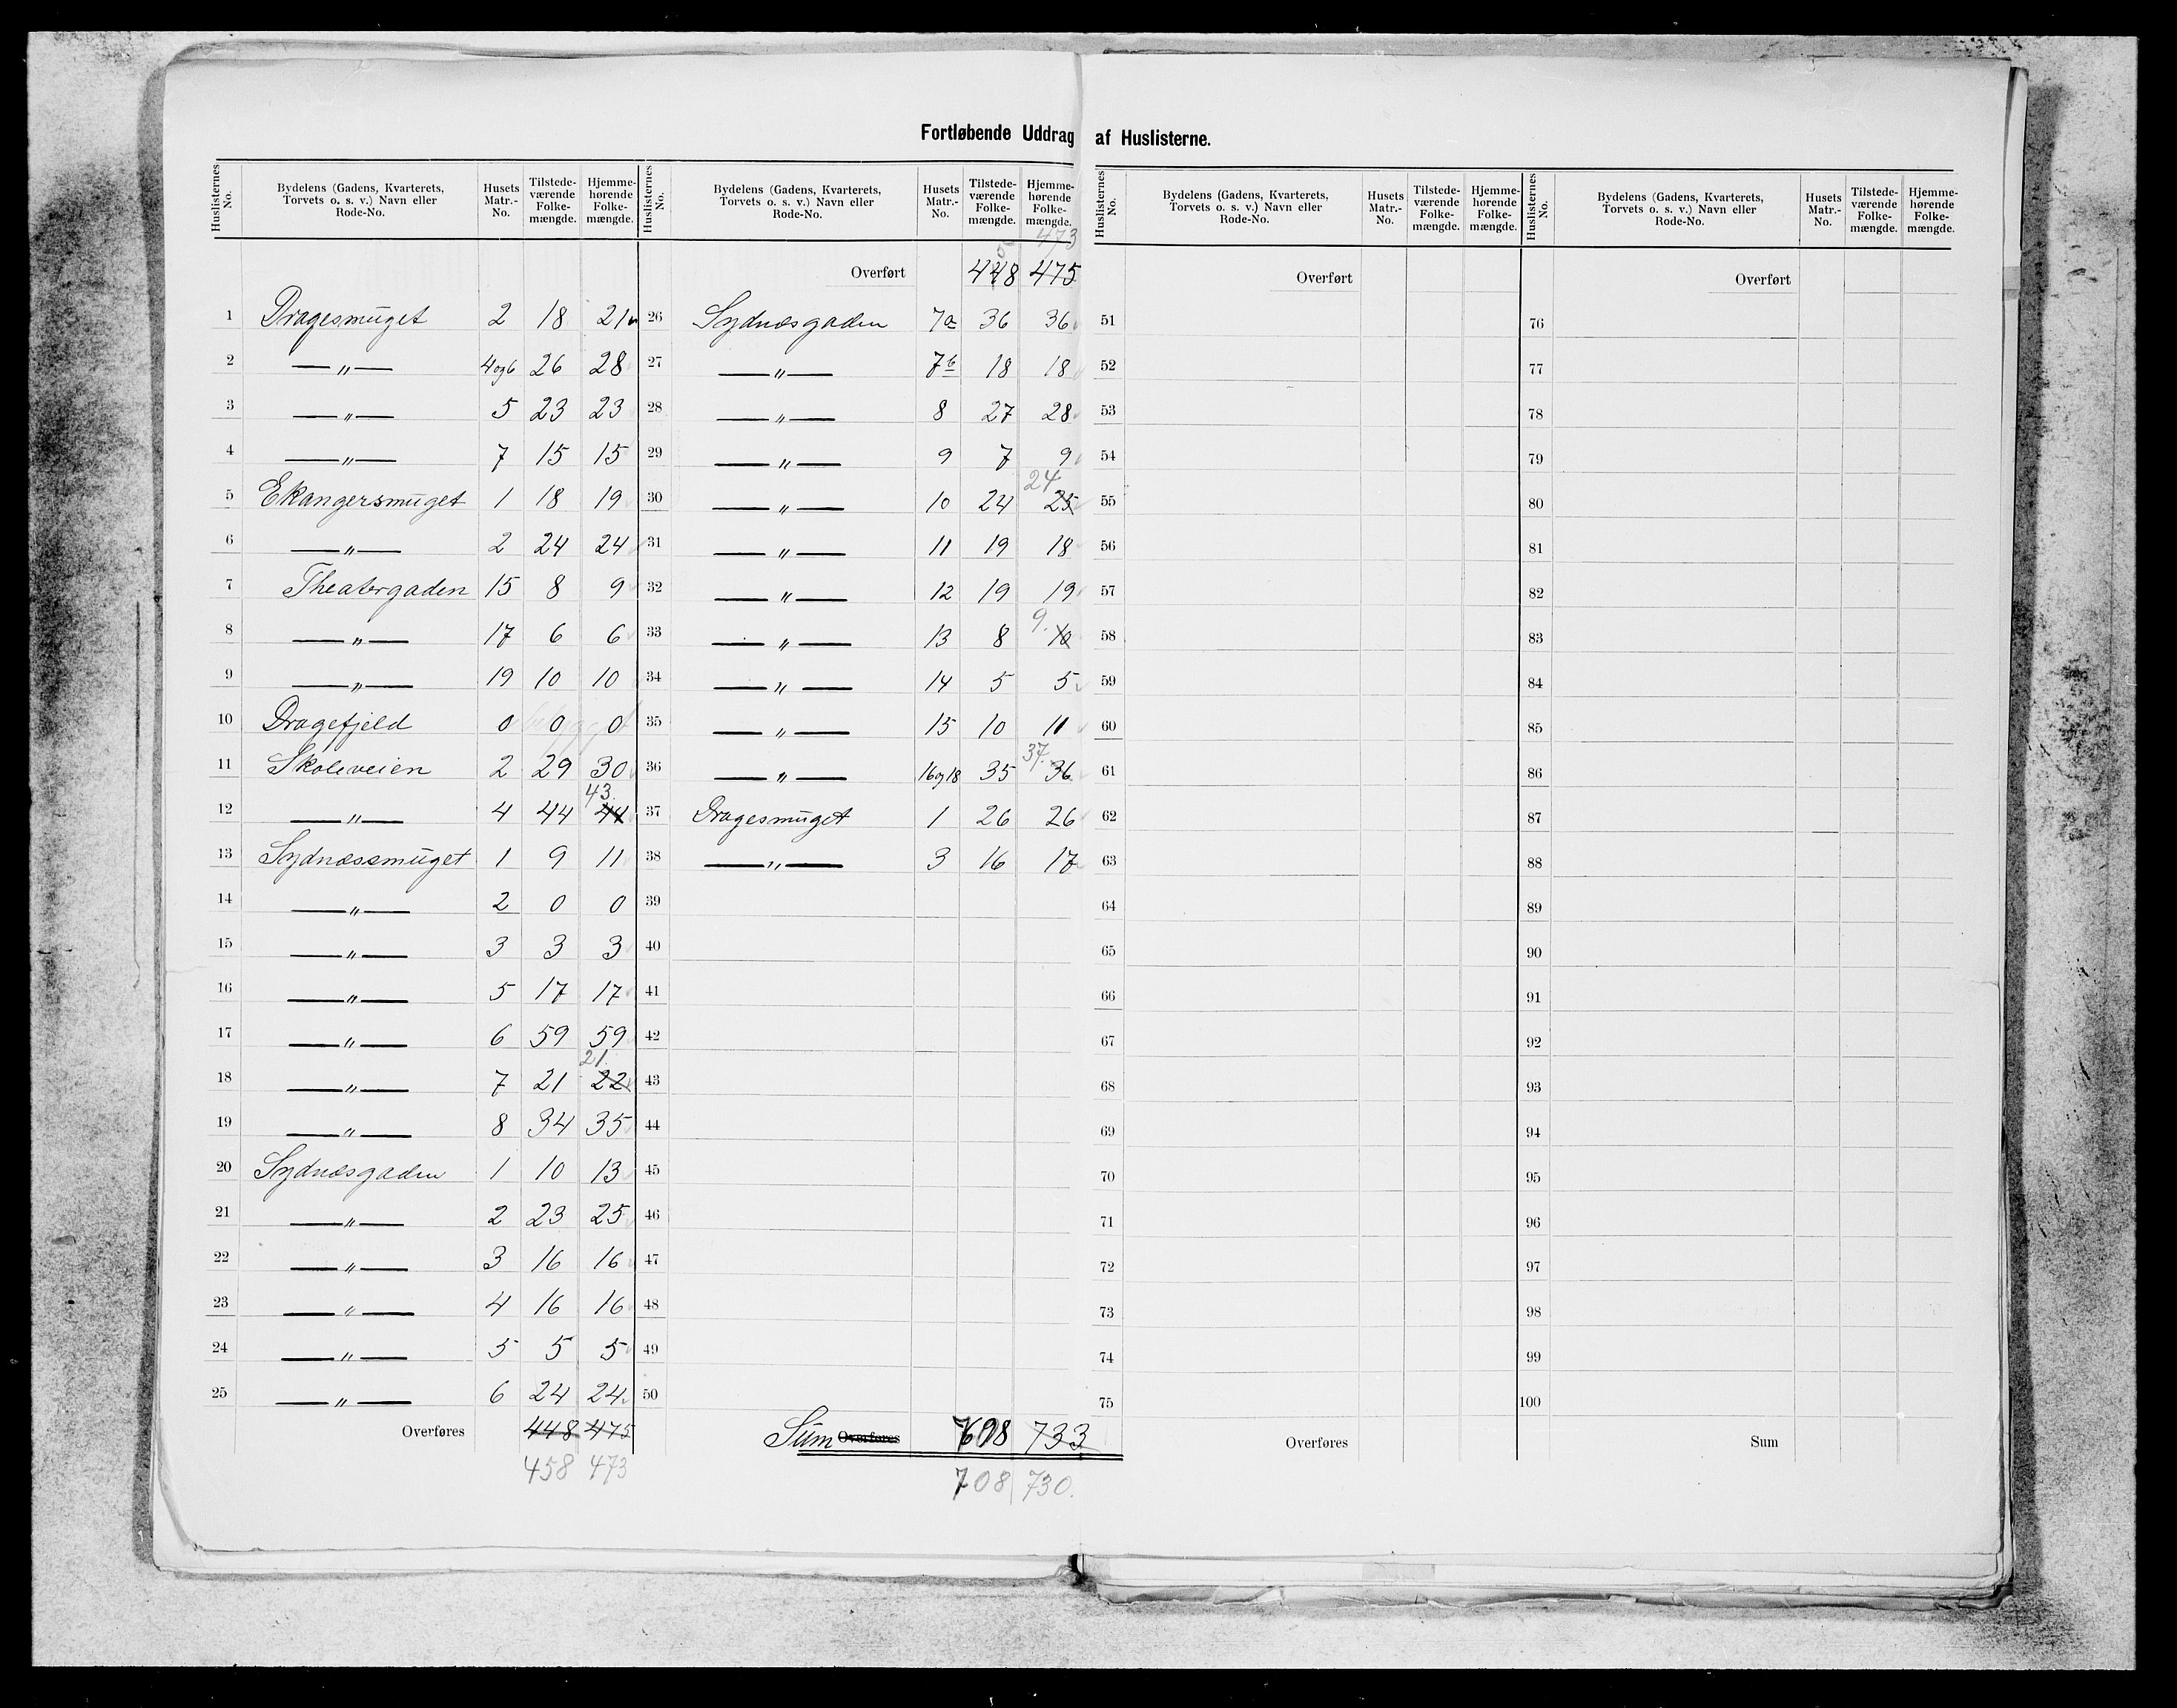 Fortløbende Uddrag af Huslisterne.
Huslisternes No. | Bydelens (Gadens, Kvarterets, Torvets o. s. v.) Navn eller Rode-No. | Husets Matr.-No. | Tilstede-værende Folke-mængde. | Hjemme-hørende Folke-mængde.
1 Dragesmuget 2 18 21
2 —„— 4og6 26 28
3 —„— 5 23 23
4 —„— 7 15 15
5 Ekangersmuget 1 18 19
6 —„— 2 24 24
7 Theatergaden 15 8 9
8 —„— 17 6 6
9 —„— 19 10 10
10 Dragefjeld 0 0 0
11 Skoleveien 2 29 30
12 —„— 4 44 44 43.
13 Sydnæssmuget 1 9 11
14 —„— 2 0 0
15 —„— 3 3 3
16 —„— 5 17 17
17 —„— 6 59 59
18 —„— 7 21 22 21.
19 —„— 8 34 35
20 Sydnæsgaden 1 10 13
21 —„— 2 23 25
22 —„— 3 16 16
23 —„— 4 16 16
24 —„— 5 5 5
25 —„— 6 24 24
Overføres 448 475
458 473
Huslisternes No. | Bydelens (Gadens, Kvarterets, Torvets o. s. v.) Navn eller Rode-No. | Husets Matr.-No. | Tilstede-værende Folke-mængde. | Hjemme-hørende Folke-mængde.
5 473
Overført 448 475
26 Sydnæsgaden 7a 36 36
27 —„— 7b 18 18
28 —„— 8 27 28
29 —„— 9 7 9
30 —„— 10 24 25 24
31 —„— 11 19 18
32 —„— 12 19 19
33 —„— 13 8 10 9.
34 —„— 14 5 5
35 —„— 15 10 11
36 —„— 16og18 35 36 37.
37 Dragesmuget 1 26 26
38 —„— 3 16 17
39
40
41
42
43
44
45
46
47
48
49
50
Sum Overføres 698 733
708 730.
Huslisternes No. | Bydelens (Gadens, Kvarterets, Torvets o. s. v.) Navn eller Rode-No. | Husets Matr.-No. | Tilstede-værende Folke-mængde. | Hjemme-hørende Folke-mængde.
Overført
51
52
53
54
55
56
57
58
59
60
61
62
63
64
65
66
67
68
69
70
71
72
73
74
75
Overføres
Huslisternes No. | Bydelens (Gadens, Kvarterets, Torvets o. s. v.) Navn eller Rode-No. | Husets Matr.-No. | Tilstede-værende Folke-mængde. | Hjemme-hørende Folke-mængde.
Overført
76
77
78
79
80
81
82
83
84
85
86
87
88
89
90
91
92
93
94
95
96
97
98
99
100
Sum